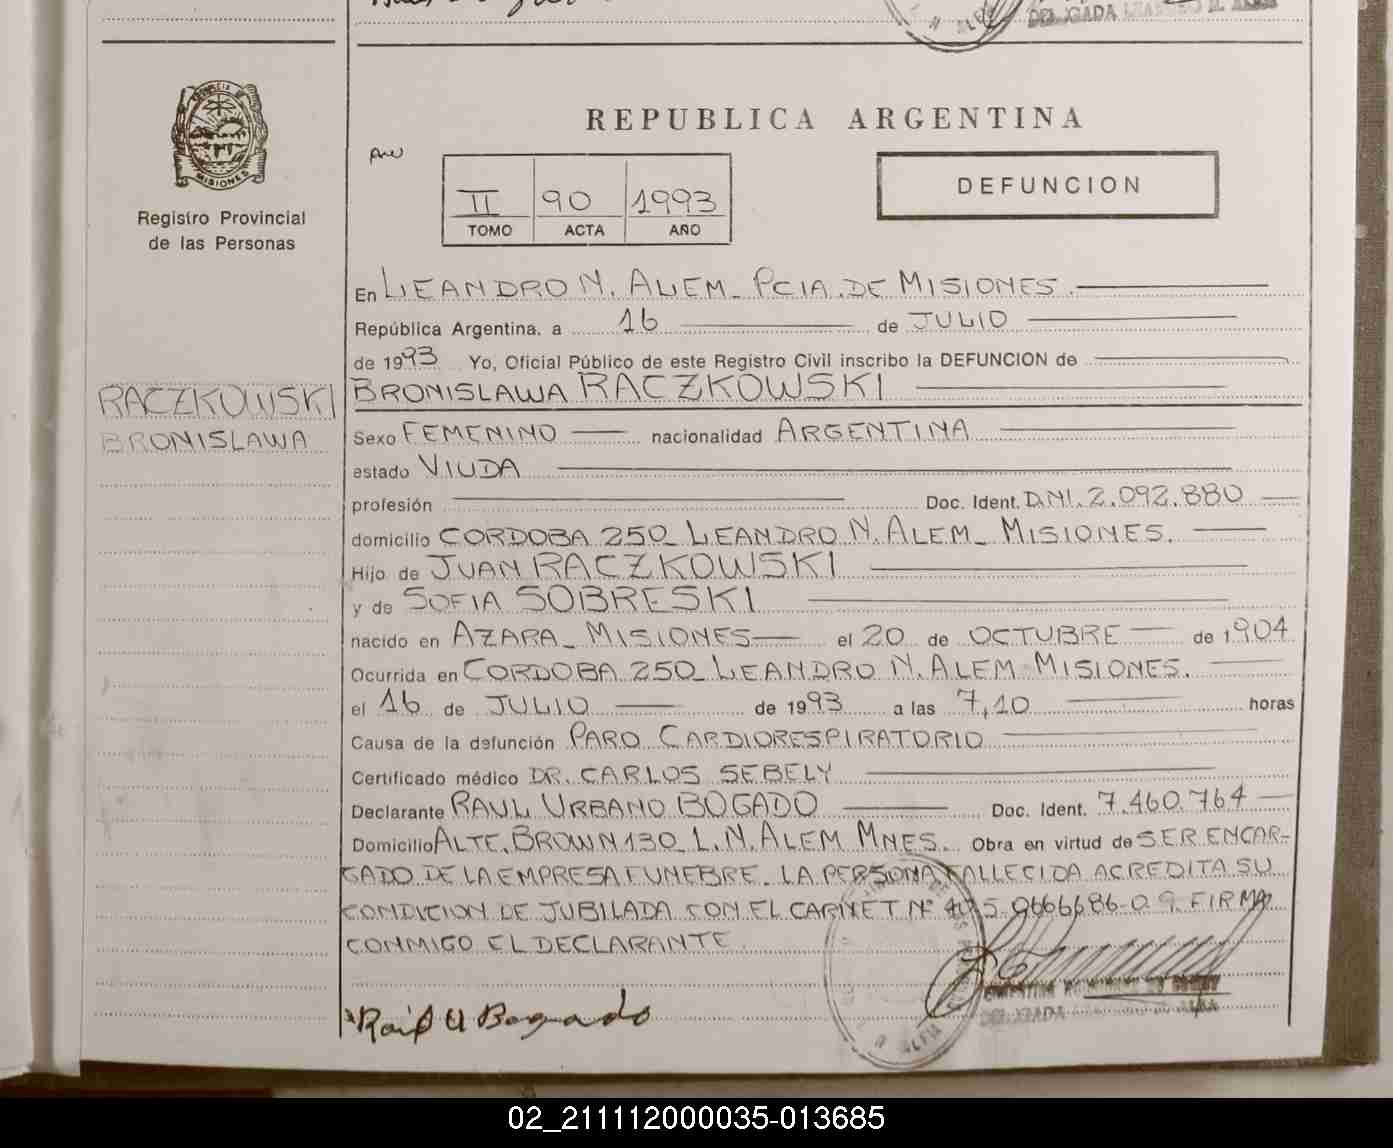 DELEGADA LEANDRO N. ALEM
PROVINCIA DE
MISIONES
Registro Provincial
de las Personas
REPUBLICA ARGENTINA
II 90 1993
TOMO ACTA AÑO
DEFUNCION
En LEANDRO N. ALEM - PCIA. DE MISIONES.
República Argentina, a 16 de JULIO
de 1993 Yo, Oficial Público de este Registro Civil inscribo la DEFUNCION de
RACZKOWSKI
BRONISLAWA
BRONISLAWA RACZKOWSKI
Sexo FEMENINO nacionalidad ARGENTINA
estado VIUDA
profesión Doc. Ident. D.N.I. 2.092.880
domicilio CORDOBA 250 - LEANDRO N. ALEM - MISIONES.
Hijo de JUAN RACZKOWSKI
y de SOFIA SOBRESKI
nacido en AZARA - MISIONES el 20 de OCTUBRE de 1904
Ocurrida en CORDOBA 250 - LEANDRO N. ALEM MISIONES.
el 16 de JULIO de 1993 a las 7,10 horas
Causa de la defunción PARO CARDIORESPIRATORIO
Certificado médico DR. CARLOS SEBELY
Declarante RAUL URBANO BOGADO Doc. Ident. 7.460.764
Domicilio ALTE. BROWN 130 L.N. ALEM MNES. Obra en virtud de SER ENCAR-
GADO DE LA EMPRESA FUNEBRE. LA PERSONA FALLECIDA ACREDITA SU
CONDICION DE JUBILADA CON EL CARNET Nº FIRMA
CONMIGO EL DECLARANTE
Raúl U Bogado
DELEGADA
N. ALEM
02_211112000035-013685